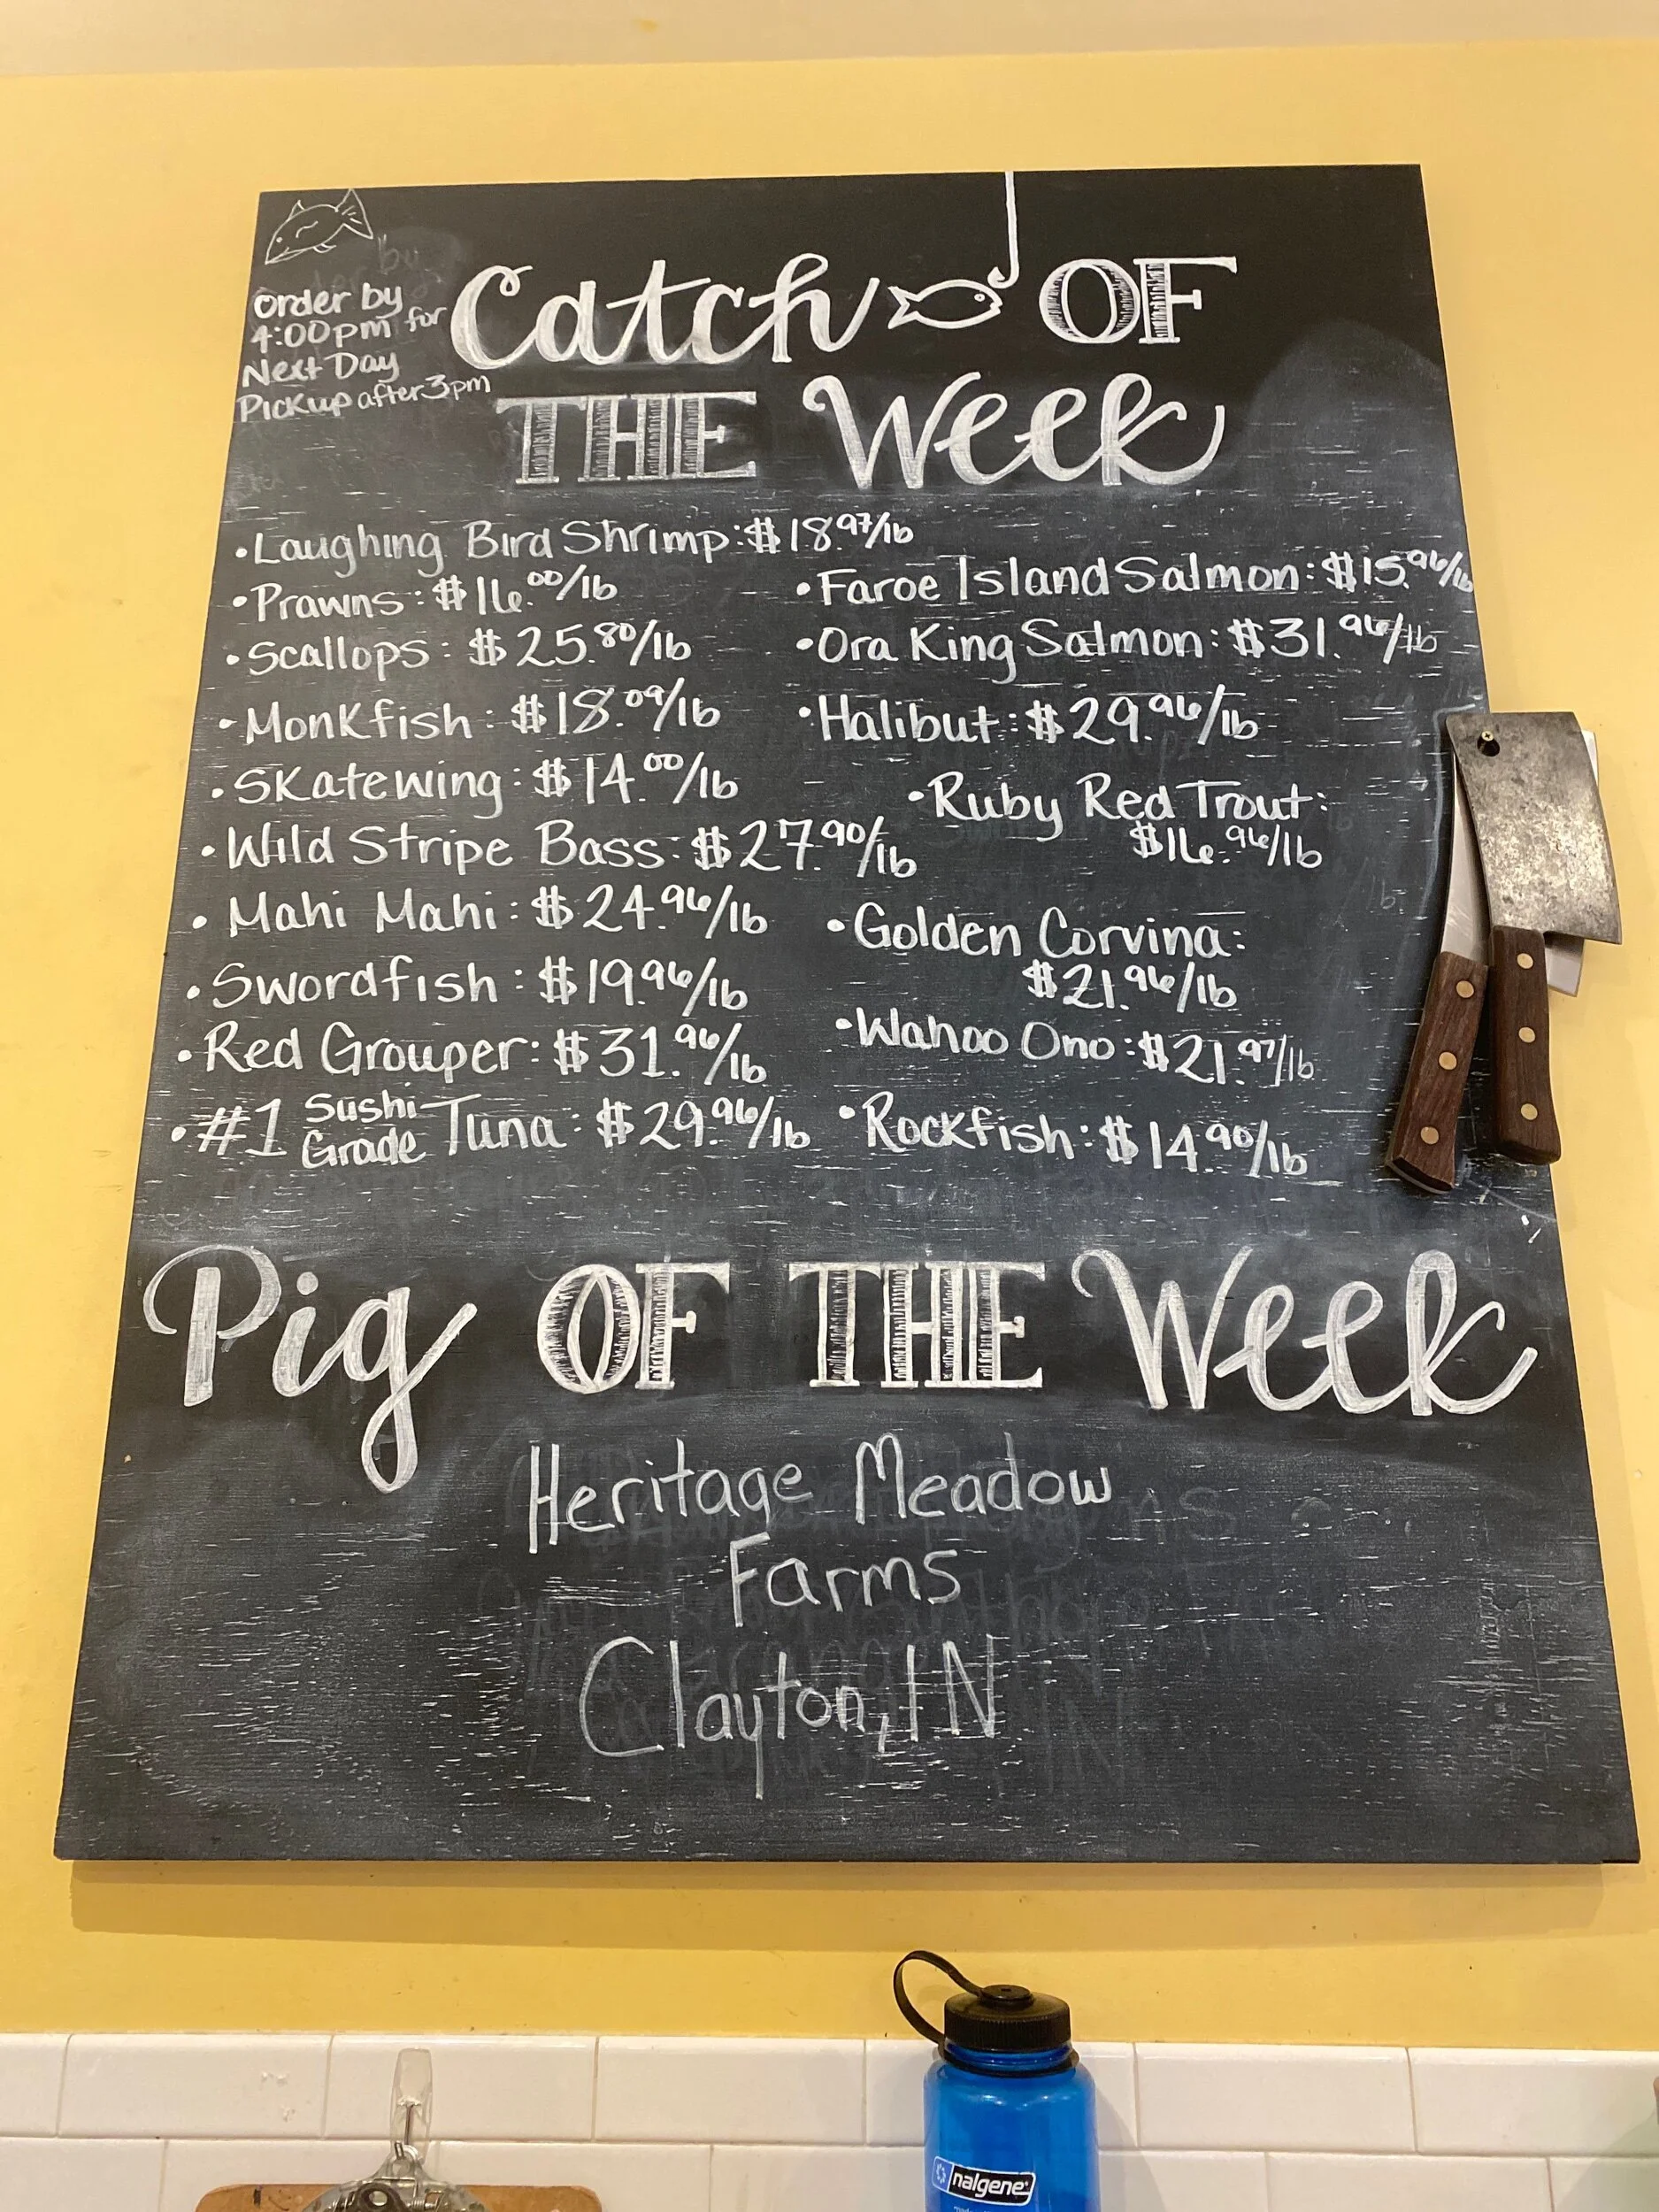 order by
4:00pm for
Next Day
Pickup after 3pm
Catch OF
THE Week
•Laughing Bird Shrimp:$18.97/lb
•Prawns:$16.00/lb
•Scallops: $25.80/lb
•Monkfish: $18.09/lb
•Skatewing: $14.00/lb
•Wild Stripe Bass: $27.90/lb
•Mahi Mahi: $24.96/lb
•Swordfish: $19.96/lb
•Red Grouper: $31.96/lb
•#1 Sushi Grade Tuna: $29.96/lb
•Faroe Island Salmon: $15.96/lb
•Ora King Salmon: $31.96/lb
•Halibut: $29.96/lb
•Ruby Red Trout:
$16.96/lb
•Golden Corvina:
$21.96/lb
•Wahoo Ono: $21.97/lb
•Rockfish: $14.90/lb
Pig OF THE Week
Heritage Meadow
Farms
Clayton, IN
nalgene